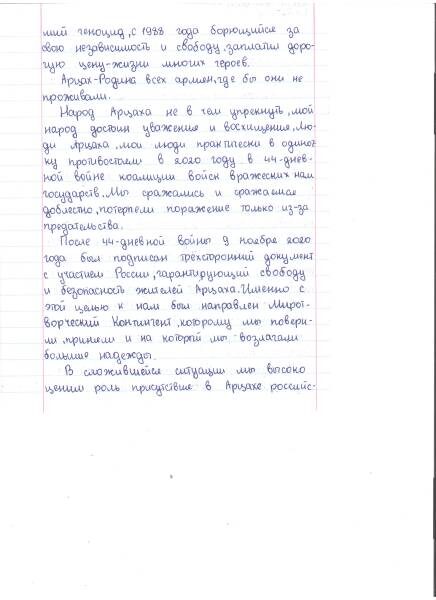 ший геноцид, с 1988 года борющийся за
свою независимость и свободу, заплатил доро-
гую цену-жизни многих героев.
Арцах-Родина всех армян, где бы они не
проживали.
Народ Арцаха не в чем упрекнуть, мой
народ достоин уважения и восхищения, лю-
ди Арцаха, мои люди практически в одиноч-
ку противостоял в 2020 году в 44-днев-
ной войне коалиции войск вражеских нам
государств. Мы сражались и сражаемся
доблестно, потерпели поражение только из-за
предательства.
После 44-дневной войны 9 ноября 2020
года был подписан трёхсторонний документ
с участием России, гарантирующий свободу
и безопасность жителей Арцаха. Именно с
этой целью к нам был направлен Мирот-
ворческий Контингент, которому мы повери-
ли, приняли и на который мы возлагали
большие надежды.
В сложившейся ситуации мы высоко
ценим роль присутствие в Арцахе российс-